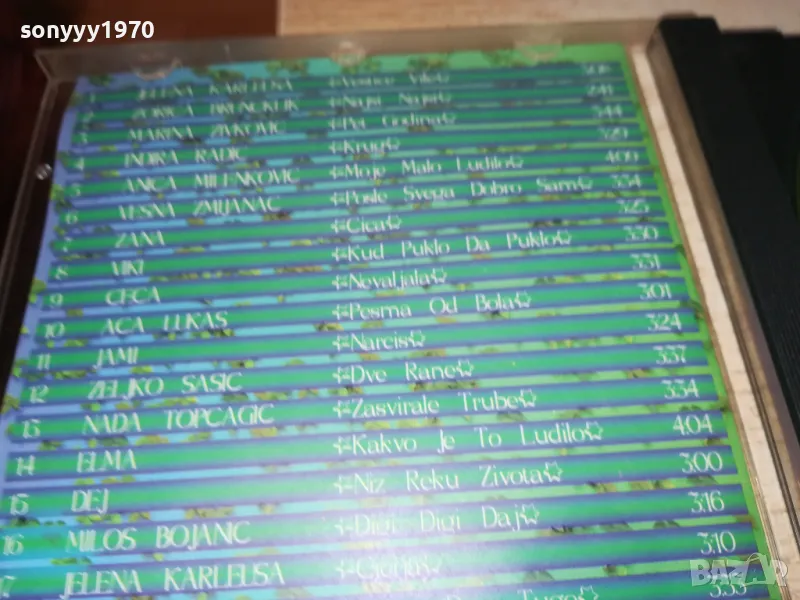 sonyyy1970
1 JELENA KARLEUSA Vestice Vile 3:08
2 ZORICA BRUNCLIK Najst Najst 2:41
3 MARINA ZIVKOVIC Pet Godina 3:44
4 INDIRA RADIC Krug 3:29
5 ANICA MILENKOVIC Moje Malo Ludilo 4:09
6 VESNA ZMIJANAC Posle Svega Dobro Sam 3:34
7 ZANA Cica 3:25
8 VIKI Kud Puklo Da Puklo 3:30
9 CECA Nevaljala 3:31
10 ACA LUKAS Pesma Od Bola 3:01
11 JAMI Narcis 3:24
12 ZELJKO SASIC Dve Rane 3:37
13 NADA TOPCAGIC Zasvirale Trube 3:34
14 ELMA Kakvo Je To Ludilo 4:04
15 DEJ Niz Reku Zivota 3:00
16 MILOS BOJANC Digi Digi Daj 3:16
17 JELENA KARLEUSA 3:10
Tugo 3:33
BAZAR